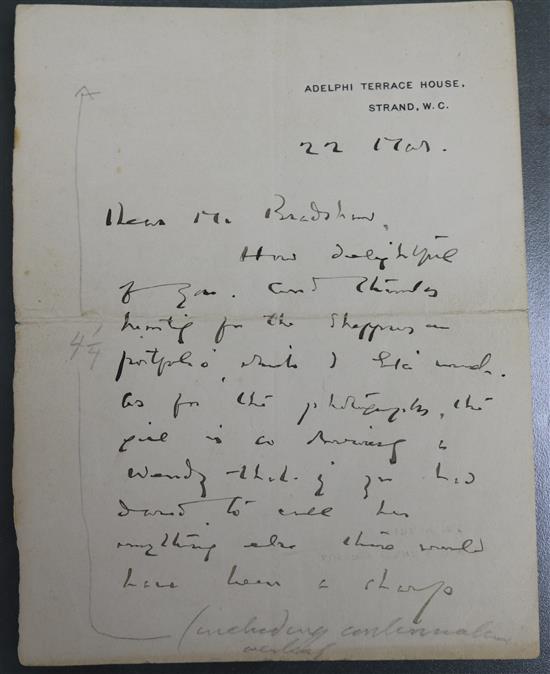 ADELPHI TERRACE HOUSE,
STRAND, W.C.
22 Mar.
Dear Mr Bradshaw,
How delightful
of you. And thanks
for the
portfolio, which I much.
As for the photographs, the
girl is so a
Wendy that if you had
dared to call her
anything else there would
have been a sharp
4 1/4
(including continuation
overleaf